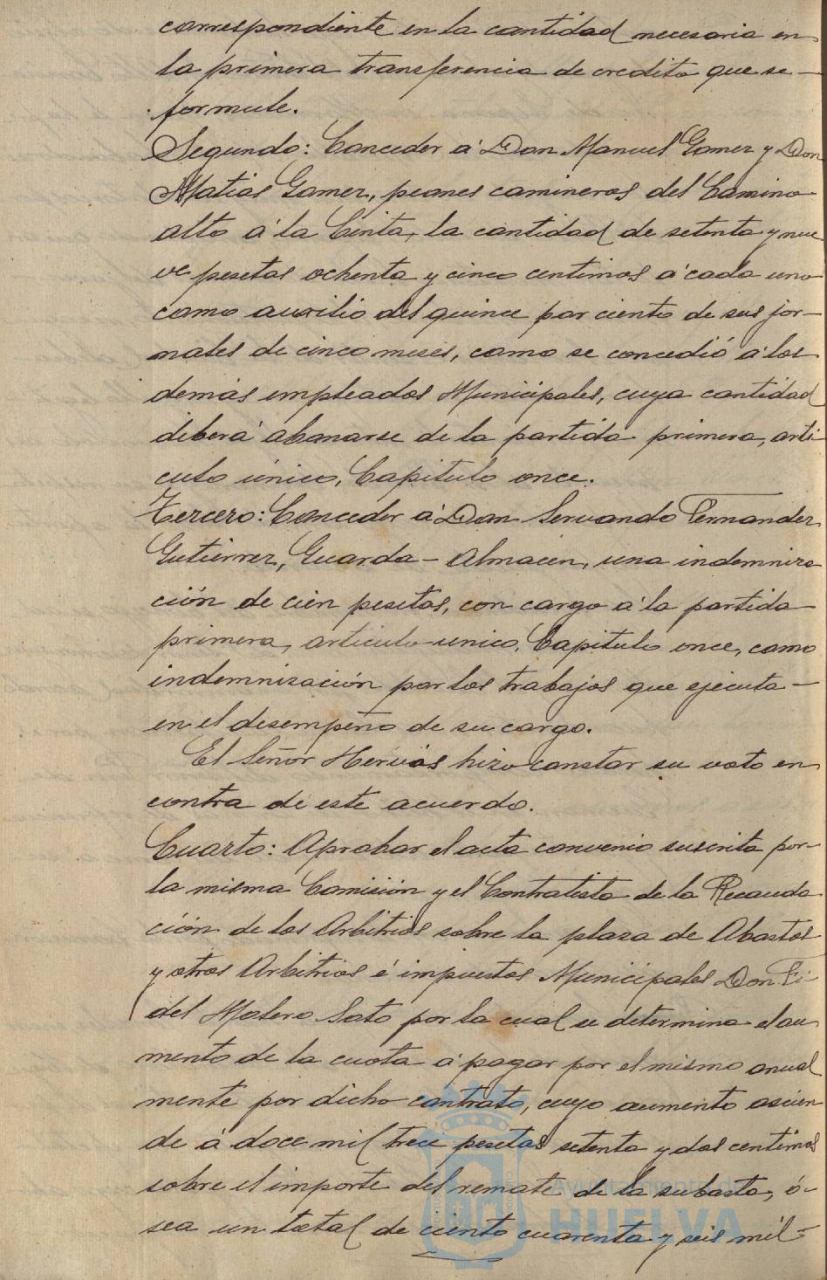 correspondiente en la cantidad necesaria en
la primera transferencia de credito que se-
formule.
Segundo: Conceder a Don Manuel Gomez y Don
Matias Gomez, peones camineros del Camino
alto á la Cinta, la cantidad de setenta y nue
ve pesetas ochenta y cinco centimos a cada uno
como auxilio del quince por ciento de sus jor-
nales de cinco meses, como se concedió a los
demás empleados Municipales, cuya cantidad
deberá abonarse de la partida primera, arti
culo único, Capitulo once.
Tercero: Conceder a Don Servando Fernandez
Gutierrez, Guarda-Almacen, una indemniza
ción de cien pesetas, con cargo a la partida
primera, articulo unico, Capitulo once, como
indemnización por los trabajos que ejecuta-
en el desempeño de su cargo.
El Señor Hervás hizo constar su voto en
contra de este acuerdo.
Cuarto: Aprobar el acta convenio suscrita por-
la misma Comisión y el Contratista de la Recauda
ción de los Arbitrios sobre la plaza de Abastos
y otros Arbitrios é impuestos Municipales Don Fi
del Molero Soto por la cual se determina el au
mento de la cuota a pagar por el mismo anual
mente por dicho contrato, cuyo aumento ascien
de á doce mil trece pesetas setenta y dos centimos
sobre el importe del remate de la subasta, ó-
sea un total de ciento cuarenta y seis mil-
Ayuntamiento de
HUELVA